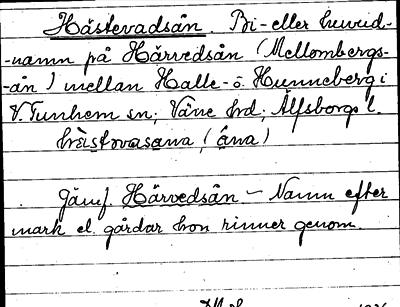 Hästevadsån. Bi- eller huvud-
-namn på Härvedsån (Mellombergs-
-ån) mellan Halle- o. Hunneberg i
V. Tunhem sn; Väne hd; Älfsborgs l.
(åna)
Jämf. Härvedsån – Namn efter
mark el. gårdar hon rinner genom.